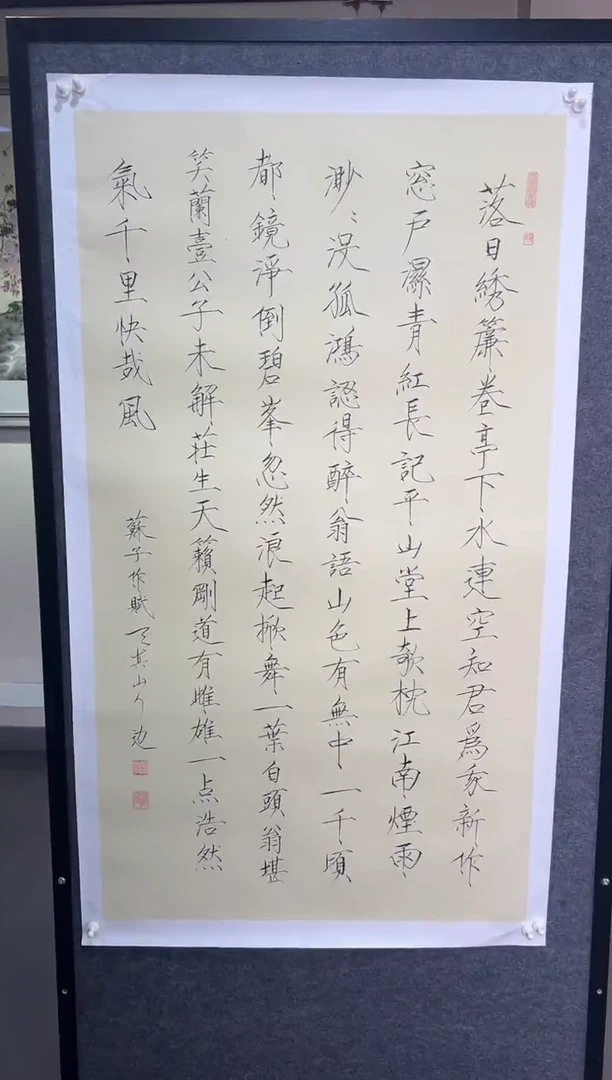 落日綉簾卷亭下水連空知君爲我新作
窓戶濕青紅長記平山堂上欹枕江南煙雨
渺〻没孤鴻認得醉翁語山色有無中一千頃
都鏡淨倒碧峯忽然浪起掀舞一葉白頭翁堪
笑蘭臺公子未解莊生天籟剛道有雌雄一点浩然
氣千里快哉風
蘇子作賦